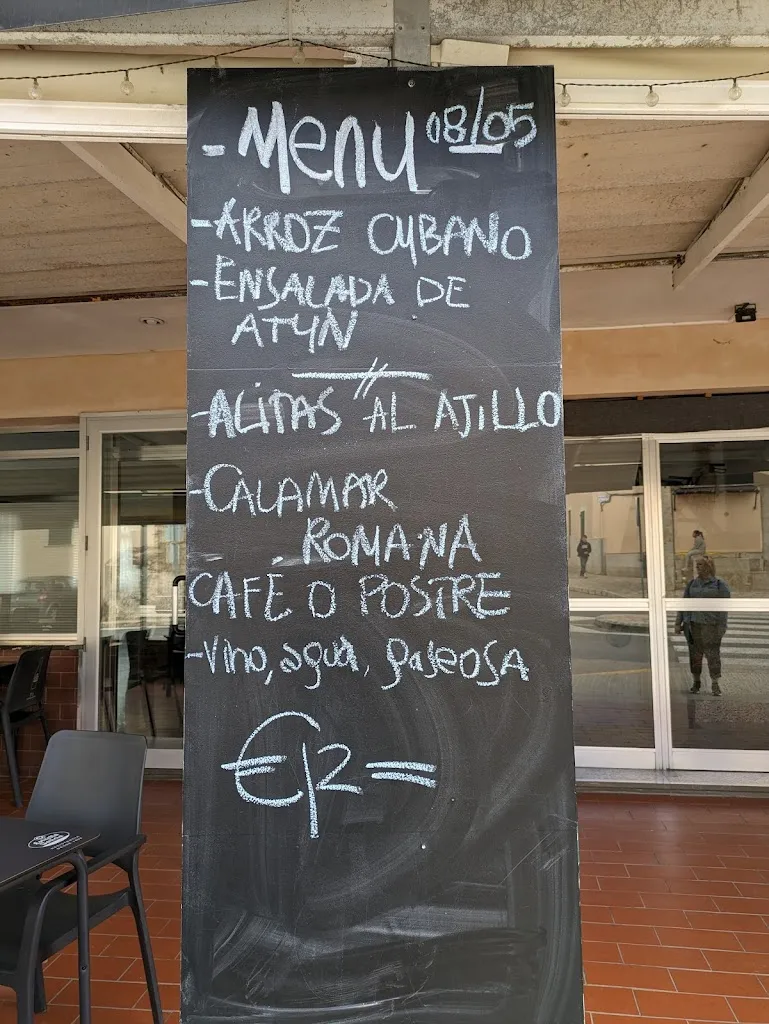 - Menu 08/05
- ARROZ CUBANO
- ENSALADA DE
ATUN
- ALITAS AL AJILLO
- CALAMAR
ROMANA
CAFE O POSTRE
- Vino, agua, gaseosa
€12=